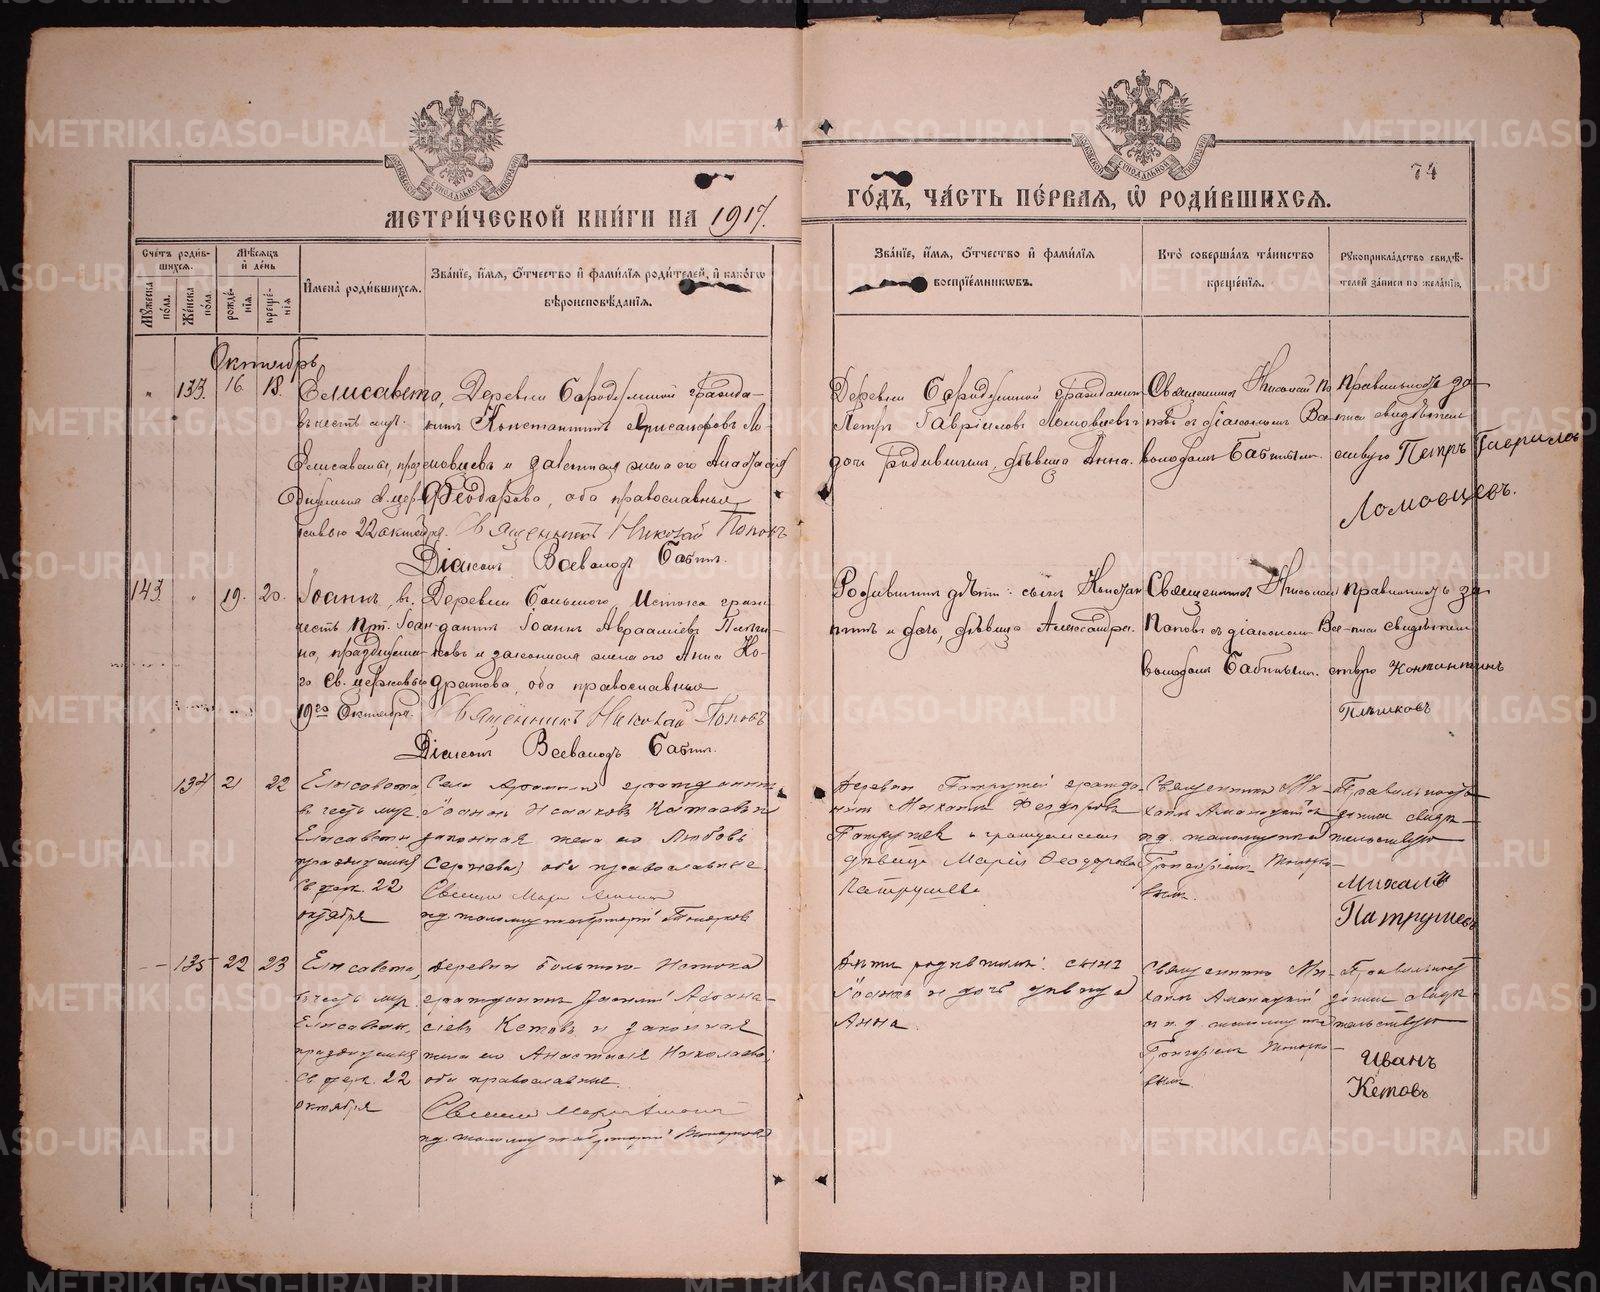 74
МЕТРИ́ЧЕСКОЙ КНИ́ГИ НА 1917.
ГО́ДЪ, ЧА́СТЬ ПЕ́РВАЯ, Ѡ РОДИ́ВШИХСЯ.
Счётъ роди́в-
шихся.
Мѣсяцъ
и день
Мꙋжеска
по́ла.
Же́нска
по́ла.
рожде́-
нїя.
креще́-
нїя
Имена̀ роди́вшихся.
Зва́нїе, и́мя, о́тчество и фами́лїя роди́телей, и како́гѡ
вѣроисповѣ́данїя.
Зва́нїе, и́мя, о́тчество и фами́лїя
воспрїе́мникѡвъ.
Кто̀ соверша́лъ та́инство
креще́нїя.
Рꙋкоприкла́дство свидѣ́-
телей за́писи по жела́нїю.
Октябрь
" 133. 16 18. Елисавета,
въ честь мцр.
Елисаветы, праз
22 октября.
Деревни Бородулиной гражда-
нинъ Константинъ Хрисанфовъ Ло-
мовцевъ и законная жена его Анастасія
Ѳеодорова, оба православные
Священникъ Николай Поповъ
Діаконъ Всеволодъ Бабинъ.
Деревни Бородулиной гражданинъ
Петръ Гавріиловъ Ломовцевъ и
дочь родившихъ, дѣвица Анна.
Священникъ Николай По
повъ съ діакономъ Все-
володомъ Бабинымъ.
Правильность за
писи свидѣтель
ствую Петръ Гаврилов
Ломовцевъ.
143. " 19. 20. Іоаннъ, въ
честь Прп. Іоан
на, празднуема
го Св. церковью
19го Октября.
Деревни Большого Истока граж
данинъ Іоаннъ Авраамиевъ
и законная жена его Анна Ко-
дратова, оба православные
Священникъ Николай Поповъ
Діаконъ Всеволодъ Бабинъ.
Родившихъ дѣти: сынъ Констан
тинъ и дочь, дѣвица Александра.
Священникъ Николай
Поповъ съ діакономъ Все-
володомъ Бабинымъ.
Правильность за
писи свидѣтель
ствую Континтинъ
Пьпиковъ
134 21 22 Елисавета,
въ честь мцр.
Елисаветы,
празднуемыя
Св. церк. 22
октября
Села Арамили гражданинъ
Іоаннъ Исааковъ Катаевъ и
законная жена его Любовь
Сергѣева, оба православные.
Деревни Патрушей гражда-
нинъ Михаилъ Ѳеодоровъ
Патрушевъ и гражданская
дѣвица Марія Ѳеодорова
Патрушева.
Священникъ Ми-
хаилъ
Правильность
записи свидѣ-
тельствую
Михаилъ
Патрушевъ
135 22 23 Елисавета,
въ честь мцр.
Елисаветы,
празднуемыя
Св. церк. 22
октября
Деревни Большого Истока
гражданинъ Василій Аѳана-
сіевъ Кетовъ и законная
жена его Анастасія Николаева;
оба православные.
Дѣти родившихъ: сынъ
Іоаннъ и дочь дѣвица
Анна.
Священникъ Ми-
хаилъ
Правильность
записи свидѣ-
тельствую
Иванъ
Кетовъ
METRIKI.GASO-URAL.RU